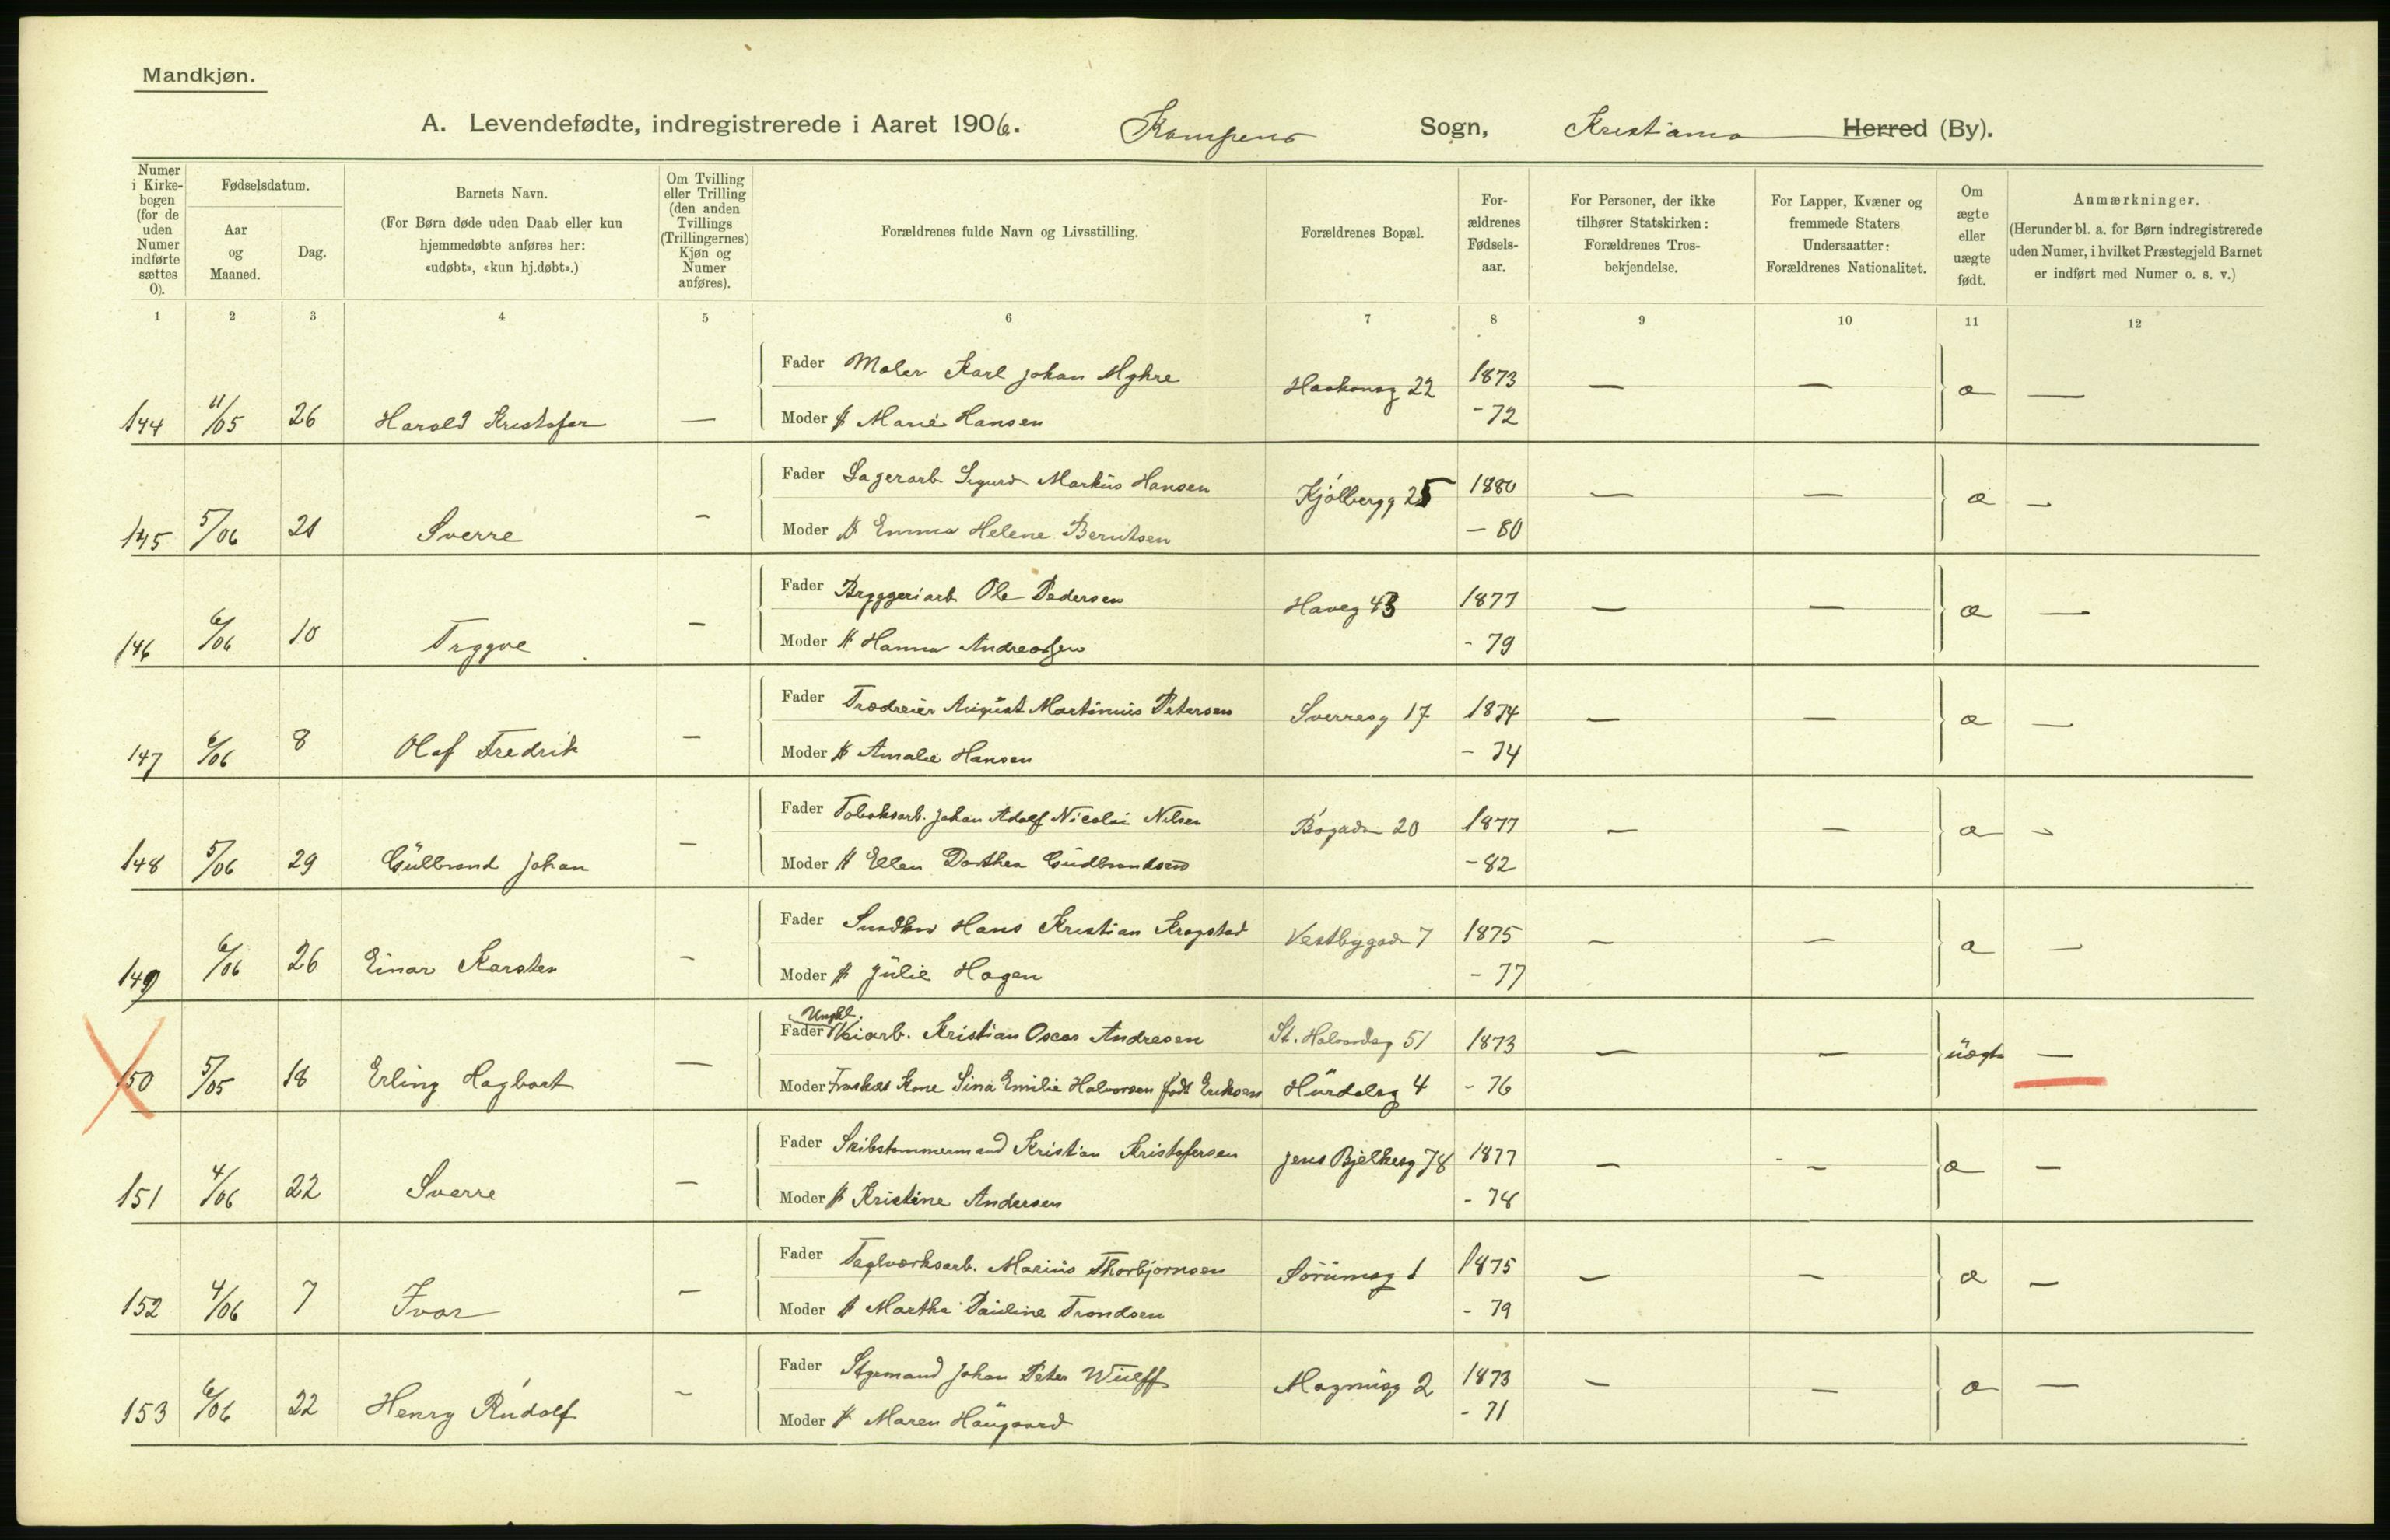 Mandkjøn.
A. Levendefødte, indregistrerede i Aaret 1906. Kampens Sogn, Kristiania Herred (By).
Numer i Kirkebogen (for de uden Numer indførte sættes 0).
Fødselsdatum.
Aar og Maaned.
Dag.
Barnets Navn.
(For Børn døde uden Daab eller kun hjemmedøbte anføres her: «udøbt», «kun hj.døbt».)
Om Tvilling eller Trilling (den anden Tvillings (Trillingernes) Kjøn og Numer anføres).
Forældrenes fulde Navn og Livsstilling.
Forældrenes Bopæl.
Forældrenes Fødselsaar.
For Personer, der ikke tilhører Statskirken: Forældrenes Trosbekjendelse.
For Lapper, Kvæner og fremmede Staters Undersaatter: Forældrenes Nationalitet.
Om ægte eller uægte født.
Anmærkninger.
(Herunder bl. a. for Børn indregistrerede uden Numer, i hvilket Præstegjeld Barnet er indført med Numer o. s. v.)
1 2 3 4 5 6 7 8 9 10 11 12
Fader Maler Karl Johan Myhre Haakonsg 22 1873 — — æ —
144 11/05 26 Harald Kristofer — Moder H Marie Hansen - 72
Fader Lagerarb Sigurd Markus Hansen Kjølbergg 25 1880 — — æ —
145 5/06 21 Sverre — Moder H Emma Helene Berntsen — 80
Fader Bryggeriarb Ole Pedersen Haveg 43 1877 — — æ —
146 6/06 10 Trygve — Moder H Hanna Andreassen - 79
Fader Trædreier August Martinius Petersen Sverresg 17 1874 — — æ —
147 6/06 8 Olaf Fredrik — Moder H Amalie Hansen - 74
Fader Tobaksarb. Johan Adolf Nicolai Nilsen Bøgada 20 1877 — — æ —
148 5/06 29 Gulbrand Johan — Moder H Ellen Dorthea Gudbrandsen - 82
Fader Hans Kristian Krogstad Vestbygada 7 1875 — — æ —
149 6/06 26 Einar Karsten — Moder H Julie Hagen - 77
Ungkl.
Fader Veiarb. Kristian Oscar Andresen St. Halvardsg 51 1873 — — uægte —
150 5/05 18 Erling Hagbart — Moder Fraskilt Kone Lina Emilie Halvorsen født Eriksen Hurdalsg 4 - 76
Fader Skibstømmermand Kristian Kristofersen Jens Bjelkesg 78 1877 — — æ —
151 4/06 22 Sverre — Moder H Kristine Andersen - 78
Fader Teglværksarb. Marius Thorbjørnsen Sørumsg 1 1875 — — æ —
152 4/06 7 Ivar — Moder H Martha Pauline Trondsen - 79
Fader Styrmand Johan Peter Wulff Magnusg 2 1873 — — æ —
153 6/06 22 Henry Rudolf — Moder H Maren Haugaard - 71